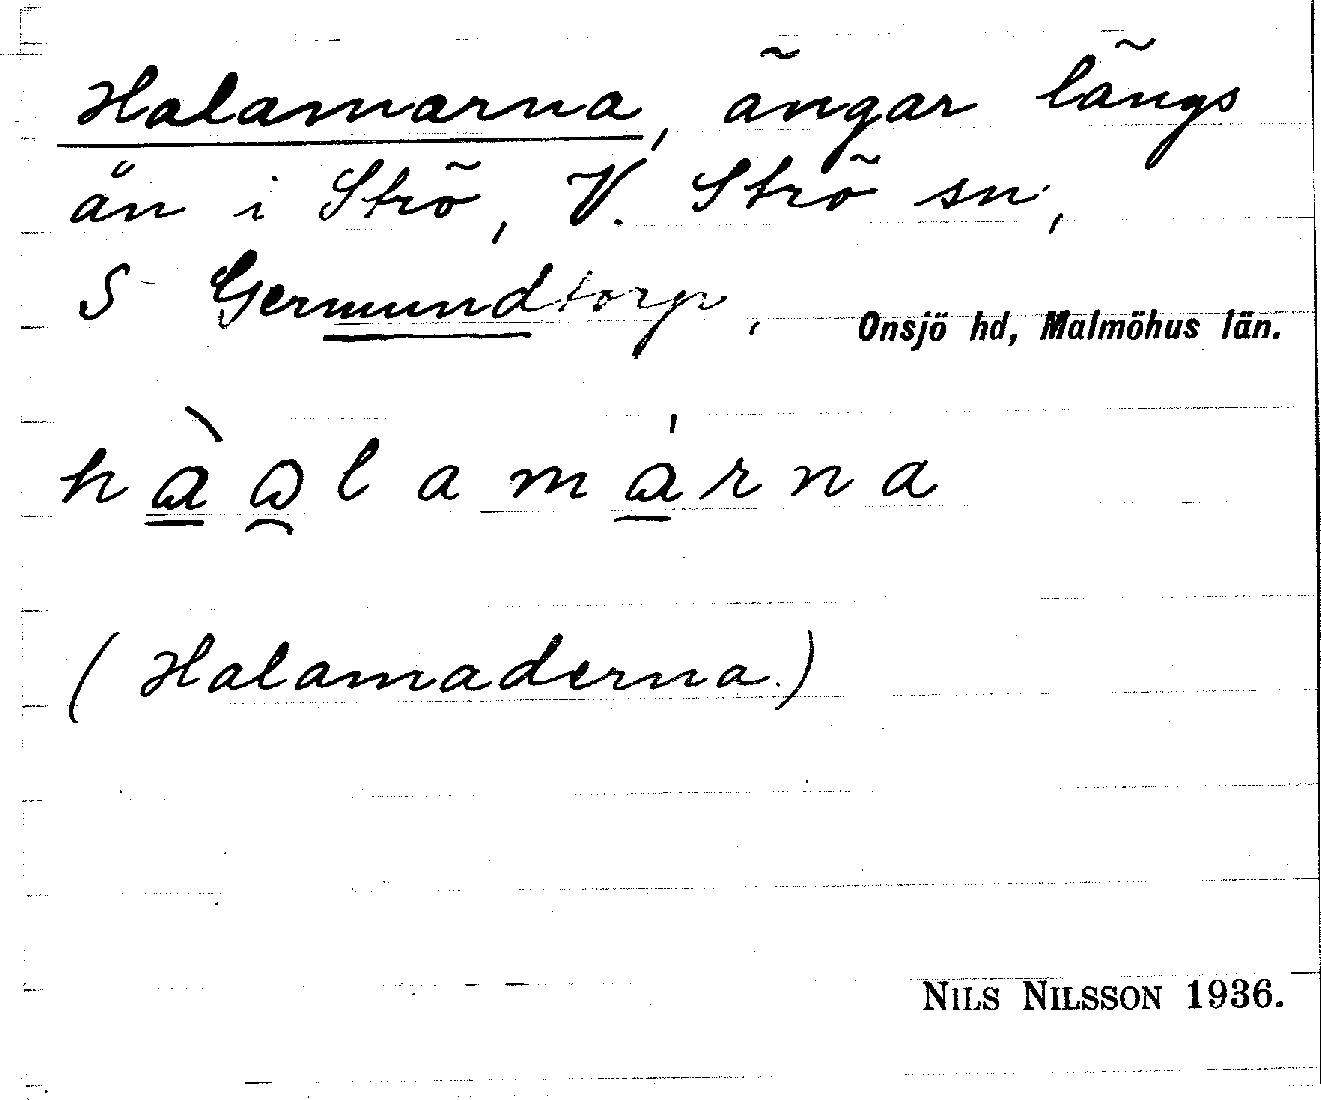 Halamarna, ängar längs
ån i Strö, V. Strö sn,
S Germundtorp,
Onsjö hd, Malmöhus län.
hàɷlamárna
(Halamaderna.)
NILS NILSSON 1936.